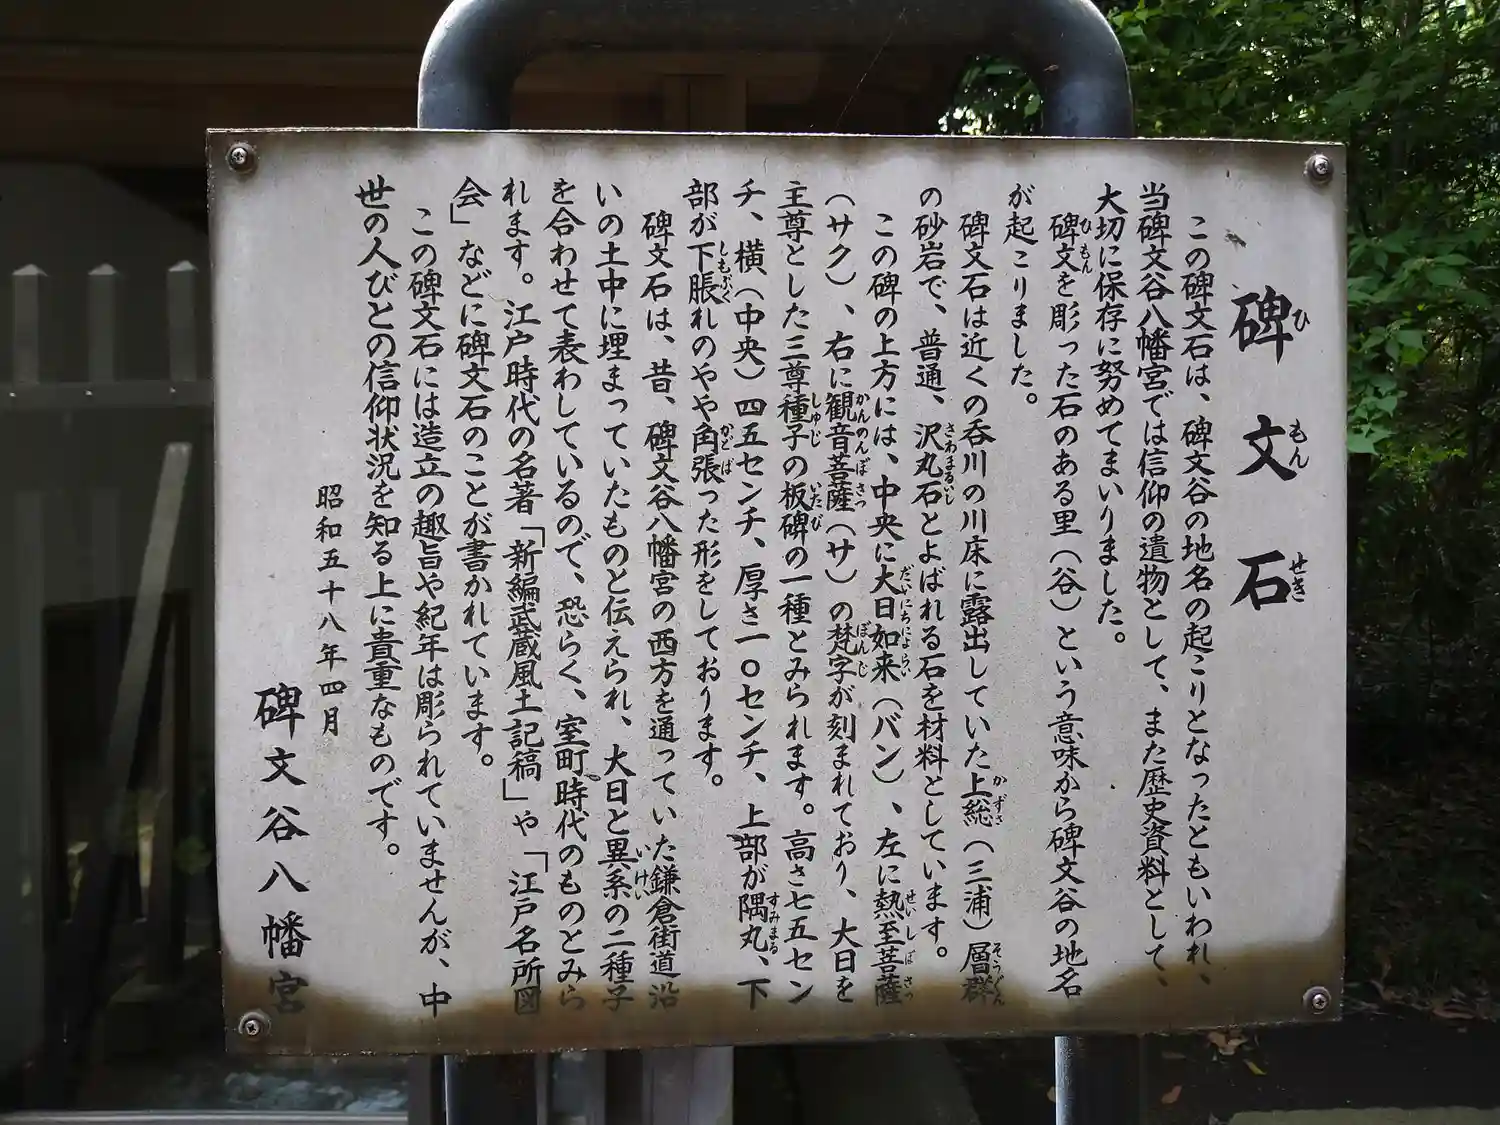 碑文石
ひもんせき
この碑文石は、碑文谷の地名の起こりとなったともいわれ、
当碑文谷八幡宮では信仰の遺物として、また歴史資料として、
大切に保存に努めてまいりました。
碑文を彫った石のある里（谷）という意味から碑文谷の地名
ひもん
が起こりました。
碑文石は近くの呑川の川床に露出していた上総（三浦）層群
かずさ そうぐん
の砂岩で、普通、沢丸石とよばれる石を材料としています。
さわまるいし
この碑の上方には、中央に大日如来（バン）、左に熱至菩薩
だいにちにょらい せいしぼさつ
（サク）、右に観音菩薩（サ）の梵字が刻まれており、大日を
かんのんぼさつ ぼんじ
主尊とした三尊種子の板碑の一種とみられます。高さ七五セン
しゅじ いたび
チ、横（中央）四五センチ、厚さ一〇センチ、上部が隅丸、下
すみまる
部が下脹れのやや角張った形をしております。
しもぶく かどば
碑文石は、昔、碑文谷八幡宮の西方を通っていた鎌倉街道沿
いの土中に埋まっていたものと伝えられ、大日と異系の二種子
いけい
を合わせて表わしているので、恐らく、室町時代のものとみら
れます。江戸時代の名著「新編武蔵風土記稿」や「江戸名所図
会」などに碑文石のことが書かれています。
この碑文石には造立の趣旨や紀年は彫られていませんが、中
世の人びとの信仰状況を知る上に貴重なものです。
昭和五十八年四月
碑文谷八幡宮